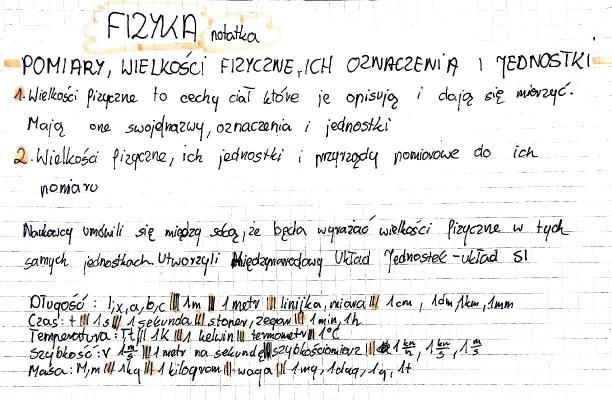 FIZYKA notatka
POMIARY, WIELKOŚCI FIZYCZNE, ICH OZNACZENIA I JEDNOSTKI
1. Wielkości fizyczne to cechy ciał które je opisują i dają się mierzyć.
Mają one swoje nazwy, oznaczenia i jednostki
2. Wielkości fizyczne, ich jednostki i przyrządy pomiarowe do ich
pomiaru
Naukowcy umówili się między sobą, że będą wyrażać wielkości fizyczne w tych
samych jednostkach. Utworzyli Międzynarodowy Układ Jednostek - układ SI
Długość: l, x, a, b, c ||| 1m ||| 1 metr ||| linijka, miara ||| 1cm, 1dm, 1km, 1mm
Czas: t ||| 1s ||| 1 sekunda ||| stoper, zegar ||| 1min, 1h
Temperatura: T, t ||| 1K ||| 1 kelwin ||| termometr ||| 1°C
Szybkość: v 1 m/s ||| 1 metr na sekundę ||| szybkościomierz ||| 1 km/h, 1 km/s, 1 m/s
Masa: M, m ||| 1kg ||| 1 kilogram ||| waga ||| 1mg, 1dag, 1g, 1t